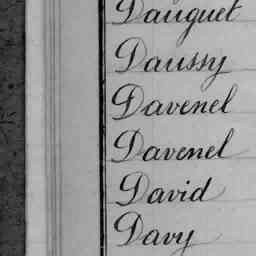 Dauguet
Daussy
Davenel
Davenel
David
Davy